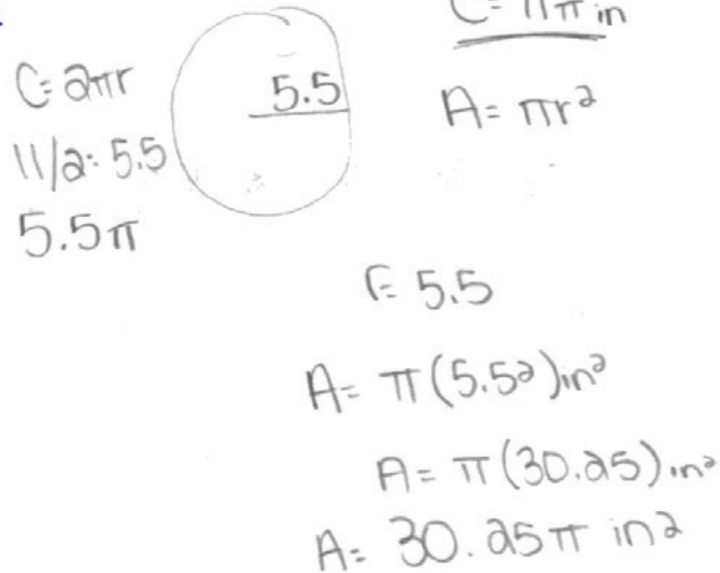 C = 11π in
C = 2πr
5.5
A = πr²
11/2 = 5.5
5.5π
r = 5.5
A = π(5.5²)in²
A = π(30.25)in²
A = 30.25π in²